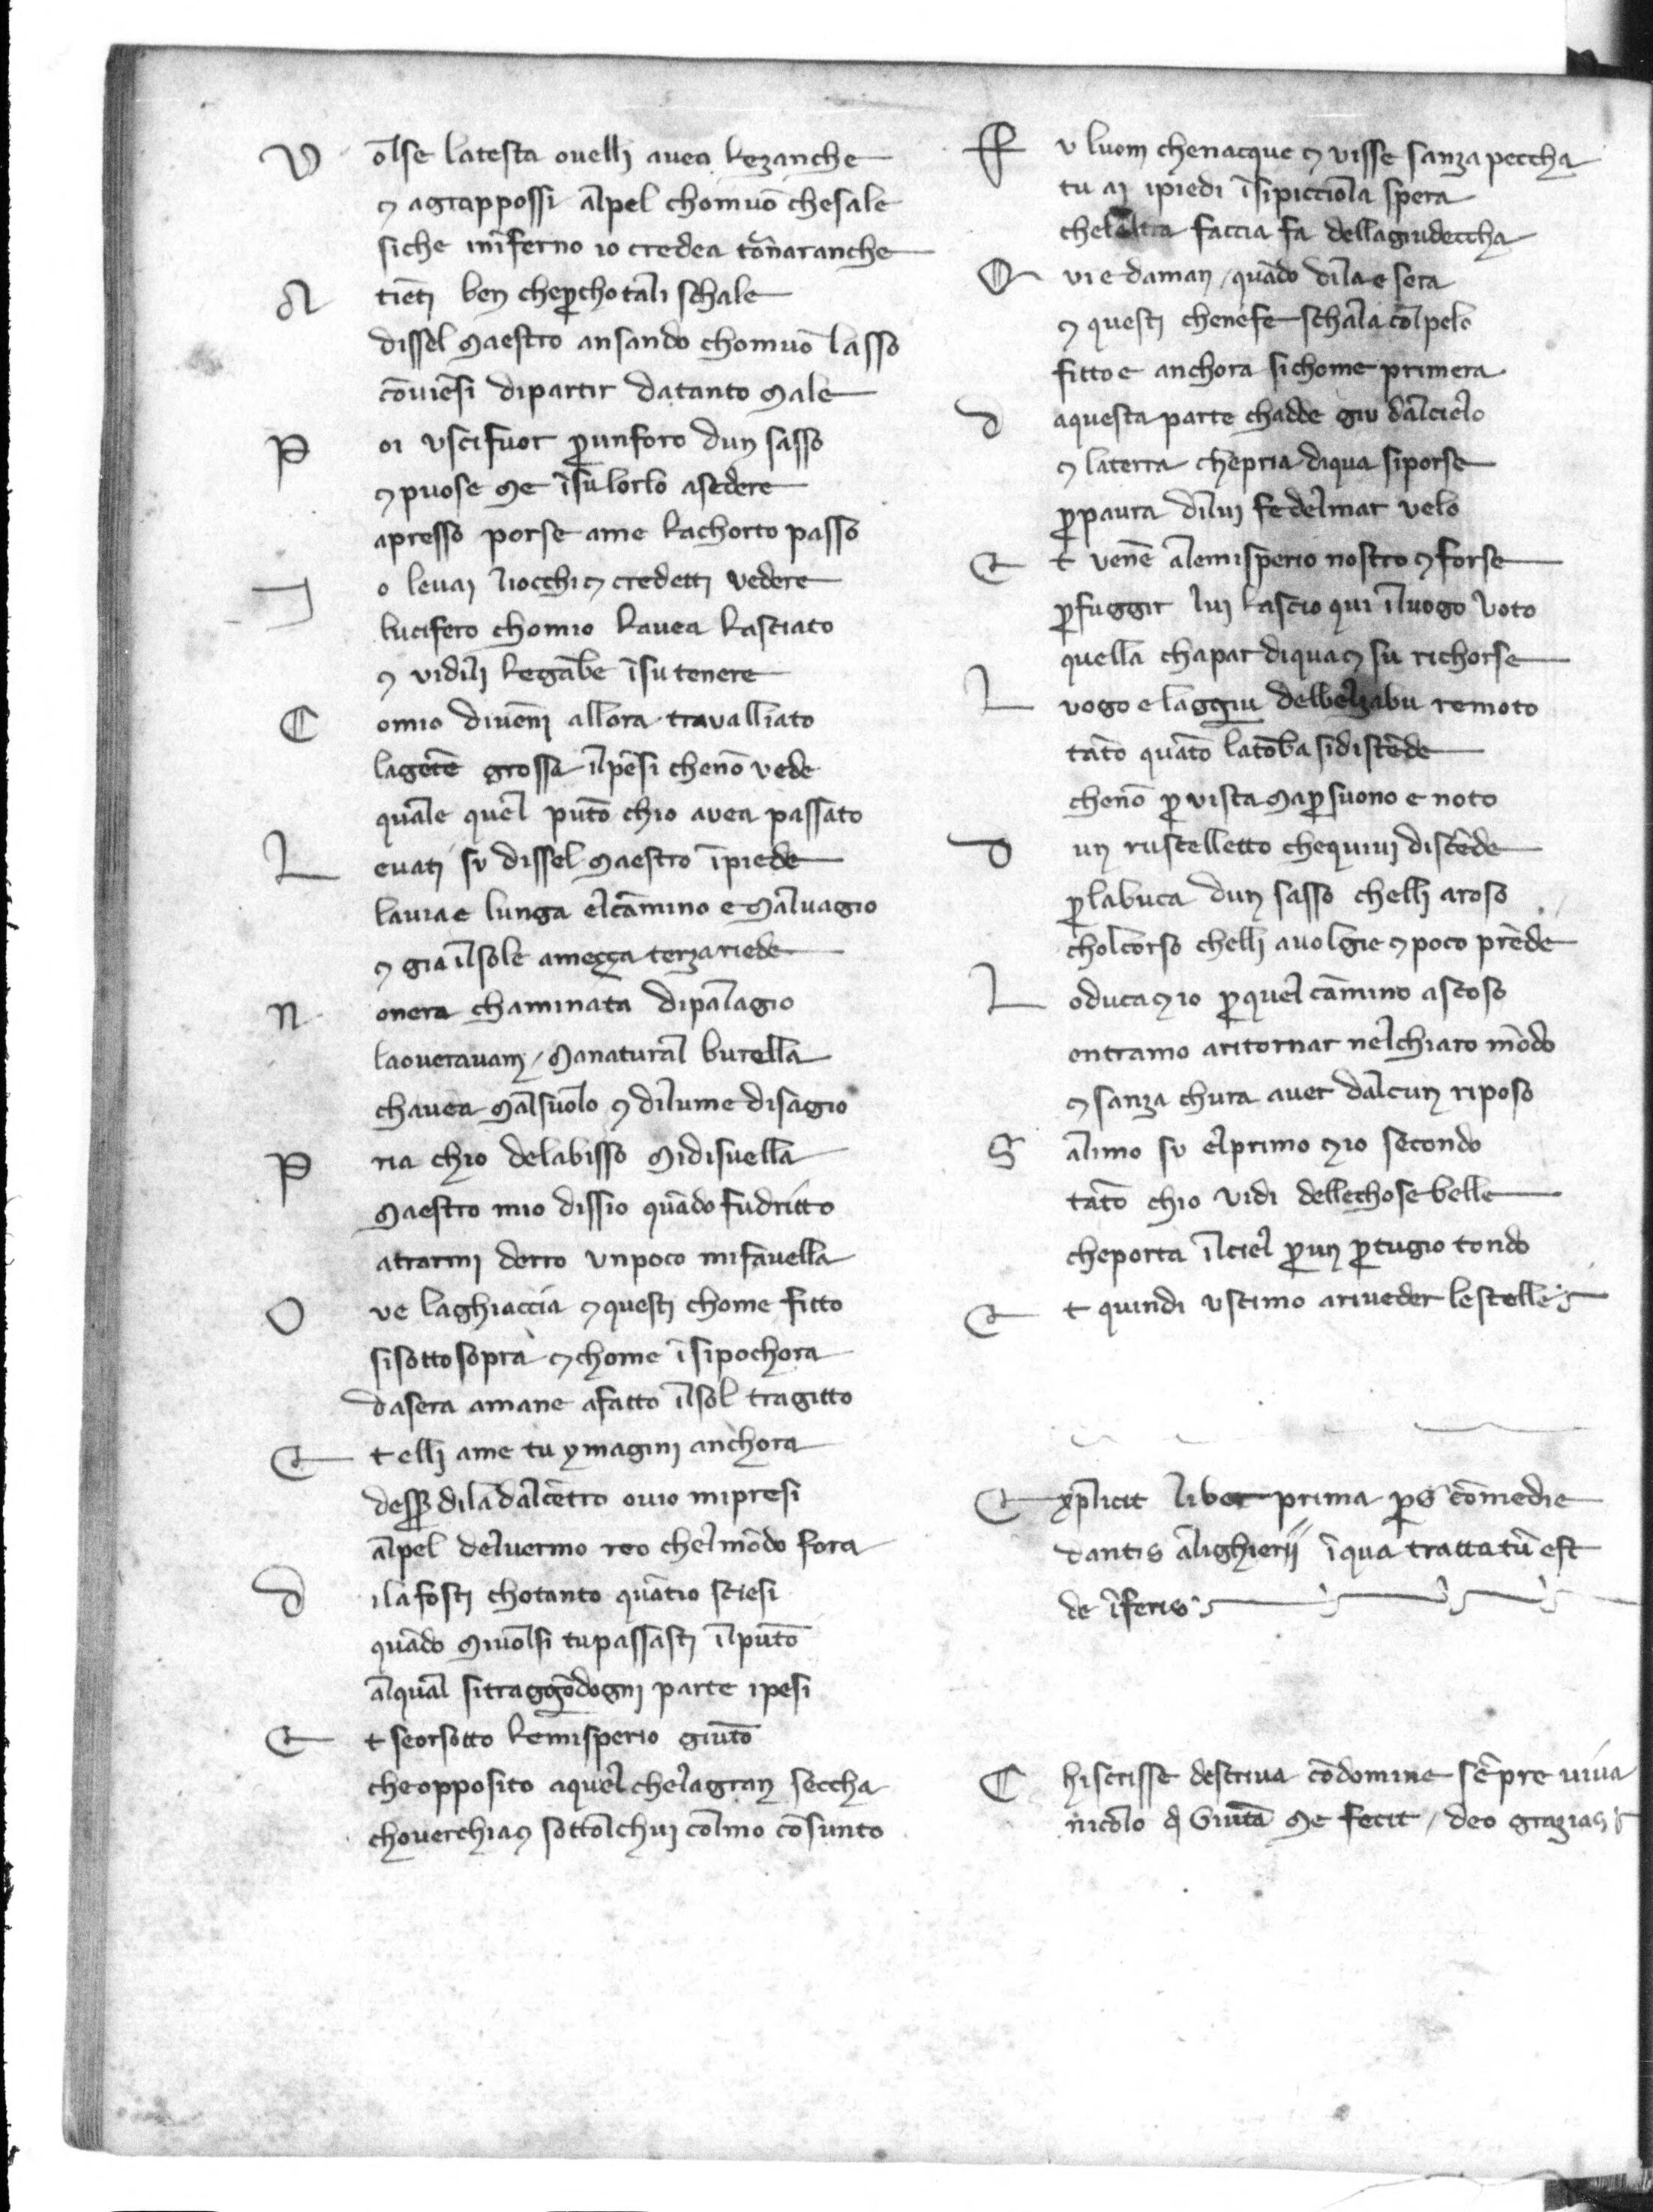 Volse latesta ovellj avea lezanche
⁊ agrappossi alpel chomuō chesale
siche inīferno io credea tōrnaranche
Atientj ben cheꝑchotali schale
dissel Maestro ansando chomuō lasso
cōviēsi dipartir datanto Male
Poi uscifuor ꝑunforo dun sasso
⁊ puose Me īsulorlo asedere
apresso porse ame lachorto passo
Io levaj liocchi ⁊ credettj vedere
lucifero chomio lavea lasciato
⁊ vidilj legābe īsu tenere
Comio divennj allora travalliato
lagēte grossa ilpēsi chenō vede
quale quel pūto chio avea passato
Levatj su dissel Maestro īpiede
lavia e lunga elcāmino e Malvagio
⁊ gia ilsole ameçça terza riede
Nonera chaminata dipalagio
laoveravamo / Manatural burella
chavea Malsuolo ⁊ dilume disagio
Pria chio delabisso Midisvella
Maestro mio dissio quādo fudritto
atrarmj derro unpoco mifavella
Ove laghiaccia ⁊ questj chome fitto
sisottosopra ⁊ chome īsipochora
dasera amane afatto ilsol tragitto
Et ellj ame tu ymaginj anchora
desꝑ dila dalcētro ovio mipresi
alpel delvermo reo chelmōdo fora
Dilafostj chotanto quātio sciesi
quādo Mivolsi tupassastj ilpūto
alqual sitraggōdognj parte ipesi
Et seorsotto lemisperio giūto
cheopposito aquel chelagran seccha
choverchia ⁊ sottolchuj colmo cōsunto
Fu luom chenacque ⁊ visse sanzapeccha
tu aj ipiedi īsipicciola spera
chelaltra faccia fa dellagiudeccha
Qui e daman / quādo dila e sera
⁊ questj chenefe schala colpelo
fitto e anchora sichome primera
Daquesta parte chadde giu dalcielo
⁊ laterra chepria diqua siporse
ꝑpaura diluj fedelmar velo
Et venne alemisperio nostro ⁊ forse
ꝑfuggir luj lascio qui illuogo voto
quella chapar diqua ⁊ su richorse
Luogo e laggiu delbelzabu remoto
tāto quāto latōba sidistēde
chenō ꝑ vista Maꝑsuono e noto
Dun ruscelletto chequivj discēde
ꝑlabuca dun sasso chellj aroso
cholcorso chellj avolgie ⁊ poco prēde
Loduca ⁊ io ꝑquel cāmino ascoso
entramo aritornar nelchiaro mōdo
⁊ sanza chura aver dalcun riposo
Salimo su elprimo ⁊ io secondo
tāto chio vidi dellechose belle
cheporta ilciel ꝑun ꝑtugio tondo
Et quindi uscimo ariveder lestelle
Explicit liber prima ꝑs comedie
dantis alighierij īqua trattatū est
de īferis
Chiscrisse descriva cōdomine sēpre viva
nicolo ꝗ Giūta Me fecit / deo grazias